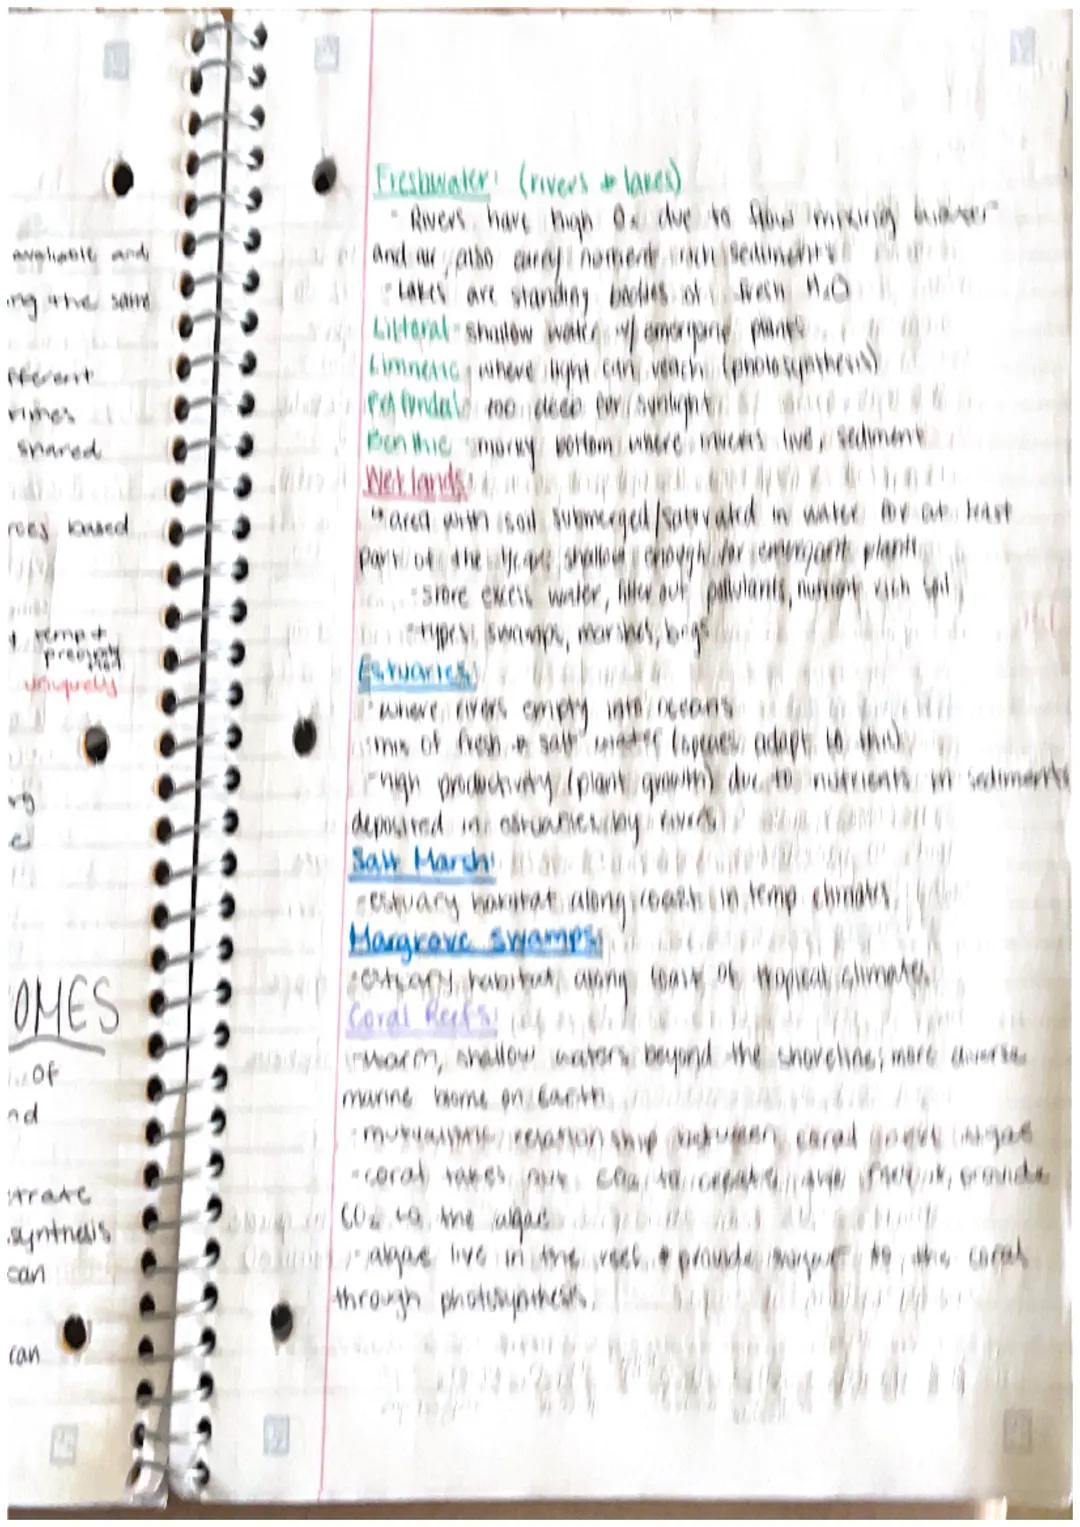 available and
ng the same
fferent
rimes
shared
rces based
temp +
uniquely
OMES
of
nd
trate
synthesis
can
can
Freshwater: (rivers + lakes)
- Rivers have high O₂ due to flow mixing water
and air, also carry nutrient rich sediments
- Lakes are standing bodies of fresh H₂O
Littoral - shallow water w/ emergent plants
Limnetic - where light can reach (photosynthesis)
Profundal - too deep for sunlight
Benthic - murky bottom where inverts live, sediment
Wetlands:
area with soil submerged/saturated in water for at least
part of the year, shallow enough for emergent plants
- store excess water, filter out pollutants, nutrient rich soil
- types: swamps, marshes, bogs
Estuaries:
- where rivers empty into oceans
- mix of fresh + salt water (species adapt to this)
- high productivity (plant growth) due to nutrients in sediments
deposited in estuaries by rivers
Salt Marsh:
- estuary habitat along coast in temp climates
Mangrove Swamps:
- estuary habitat along coast of tropical climates
Coral Reefs:
- warm, shallow waters beyond the shoreline; more diverse
marine biome on Earth
- mutualistic relationship between coral algae
- coral takes out CO₂ to create the provide
CO₂ to the algae
- algae live in the reef + provide sugar to the coral
through photosynthesis.